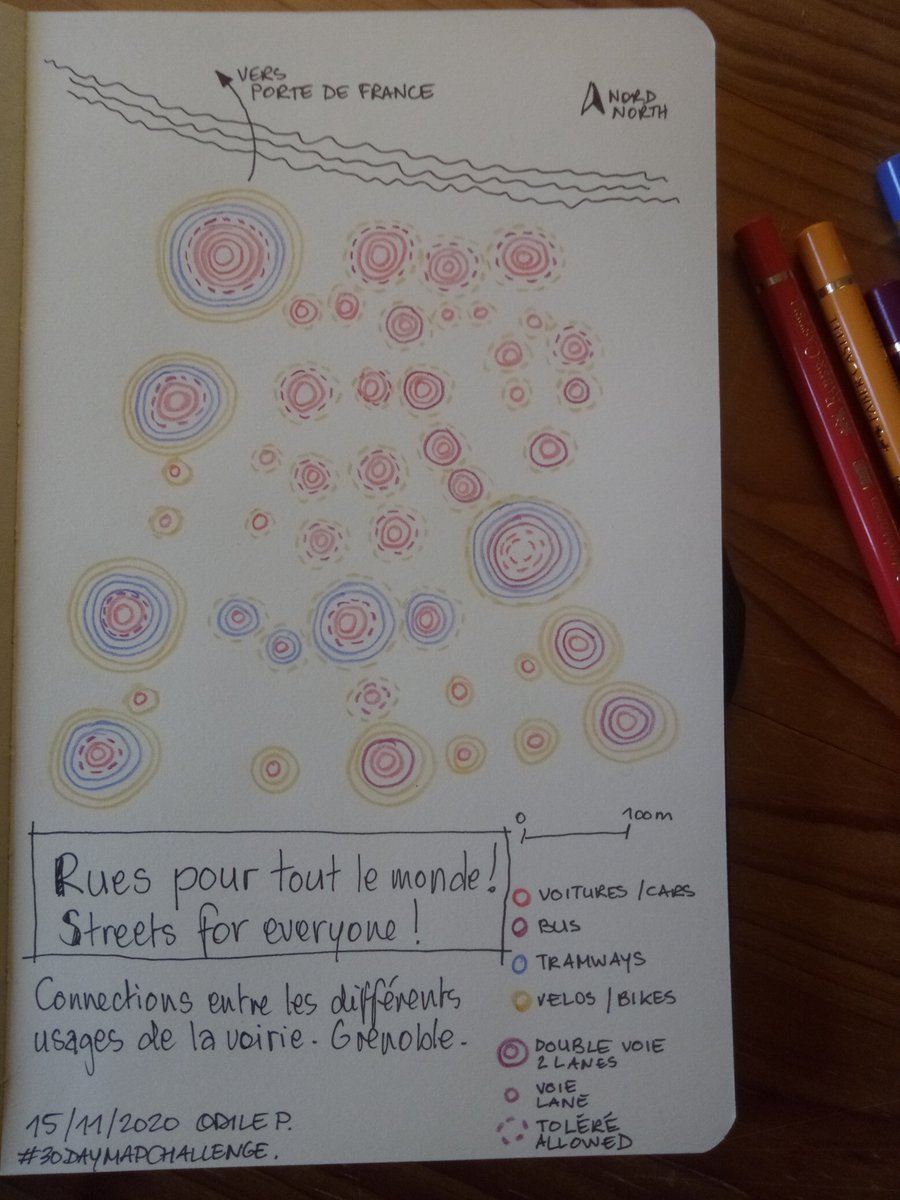 VERS
PORTE DE FRANCE
NORD
NORTH
0 100m
Rues pour tout le monde!
Streets for everyone!
VOITURES / CARS
BUS
TRAMWAYS
VELOS / BIKES
DOUBLE VOIE
2 LANES
VOIE
LANE
TOLÉRÉ
ALLOWED
Connections entre les différents
usages de la voirie. Grenoble.
15/11/2020 ODILE P.
#30DAYMAPCHALLENGE.